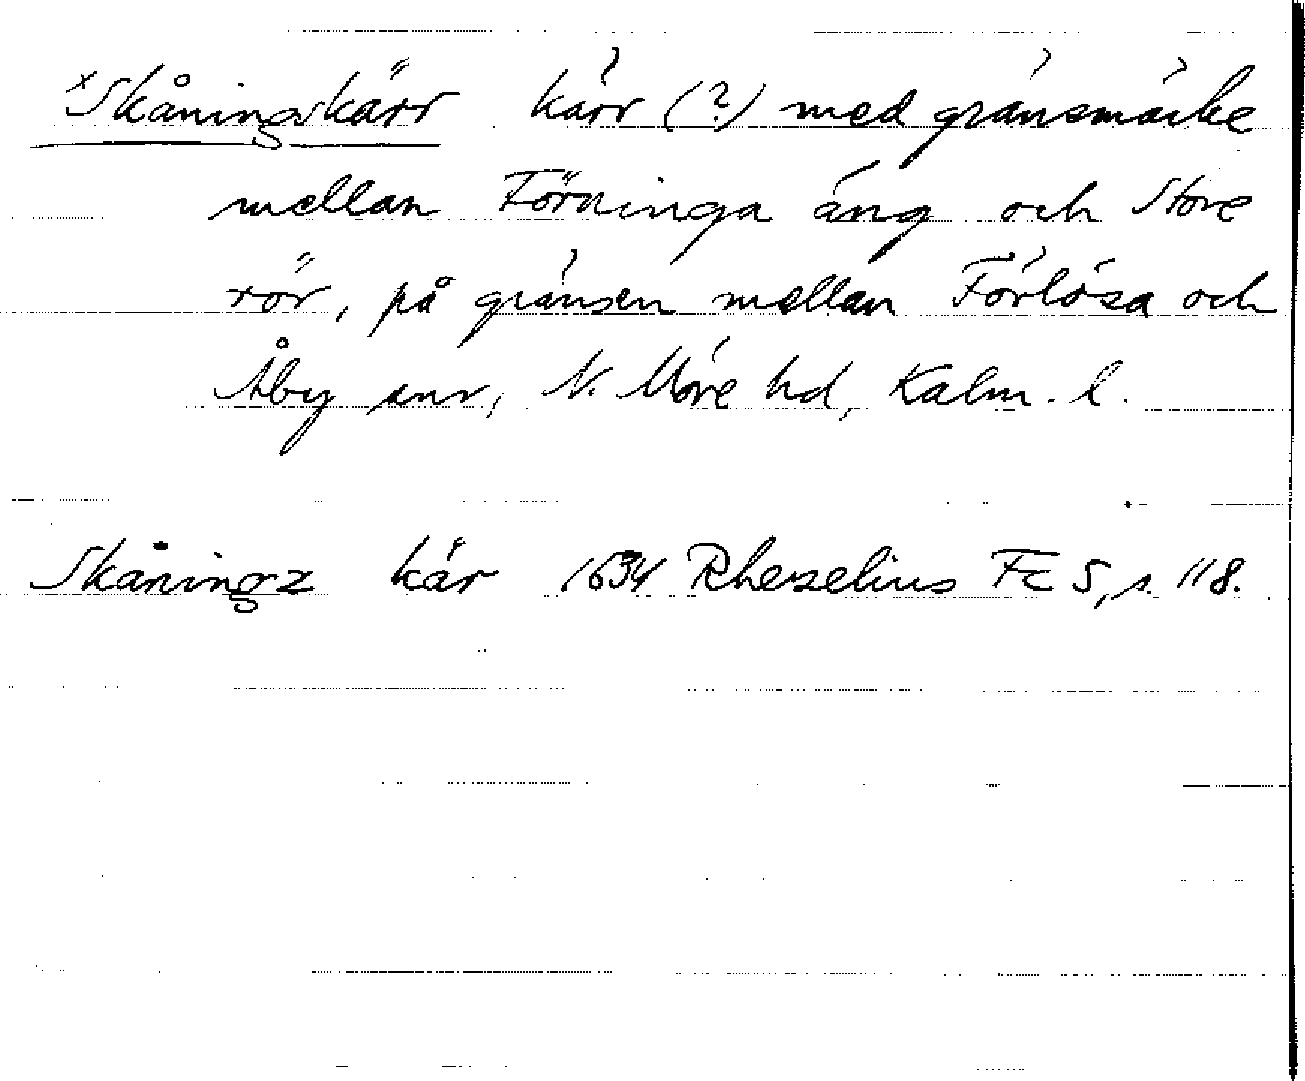 ×Skåningskärr kärr (?) med gränsmärke
mellan Förninga äng och Store
rör, på gränsen mellan Förlösa och
Åby snr, N. Möre hd, Kalm. l.
Skåningz kär 1634 Rhezelius Fc 5, s. 118.